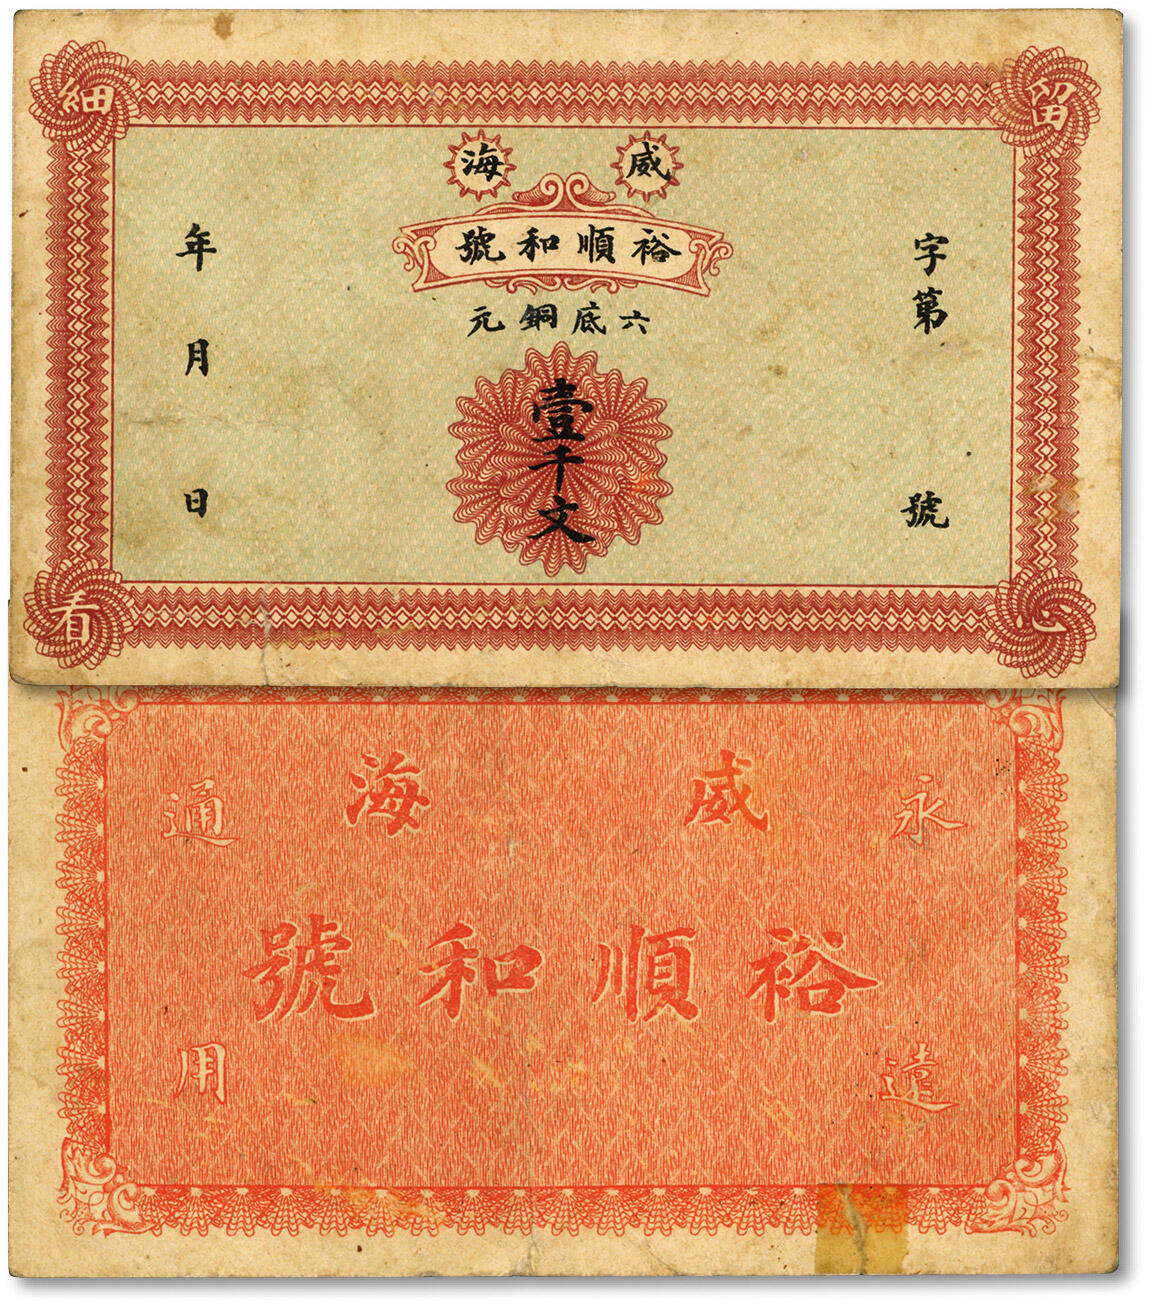 留心細看
威海
裕順和號
六底銅元
壹千文
字第號
年月日
威海
裕順和號
永遠通用